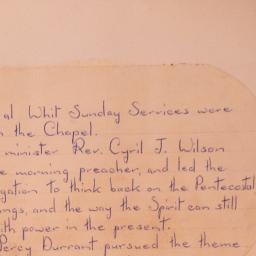 al Whit Sunday Services were
n the Chapel.
minister Rev. Cyril J. Wilson
e morning preacher, and led the
gation to think back on the Pentecostal
ings, and the way the Spirit can still
ith power in the present.
Percy Durrant pursued the theme